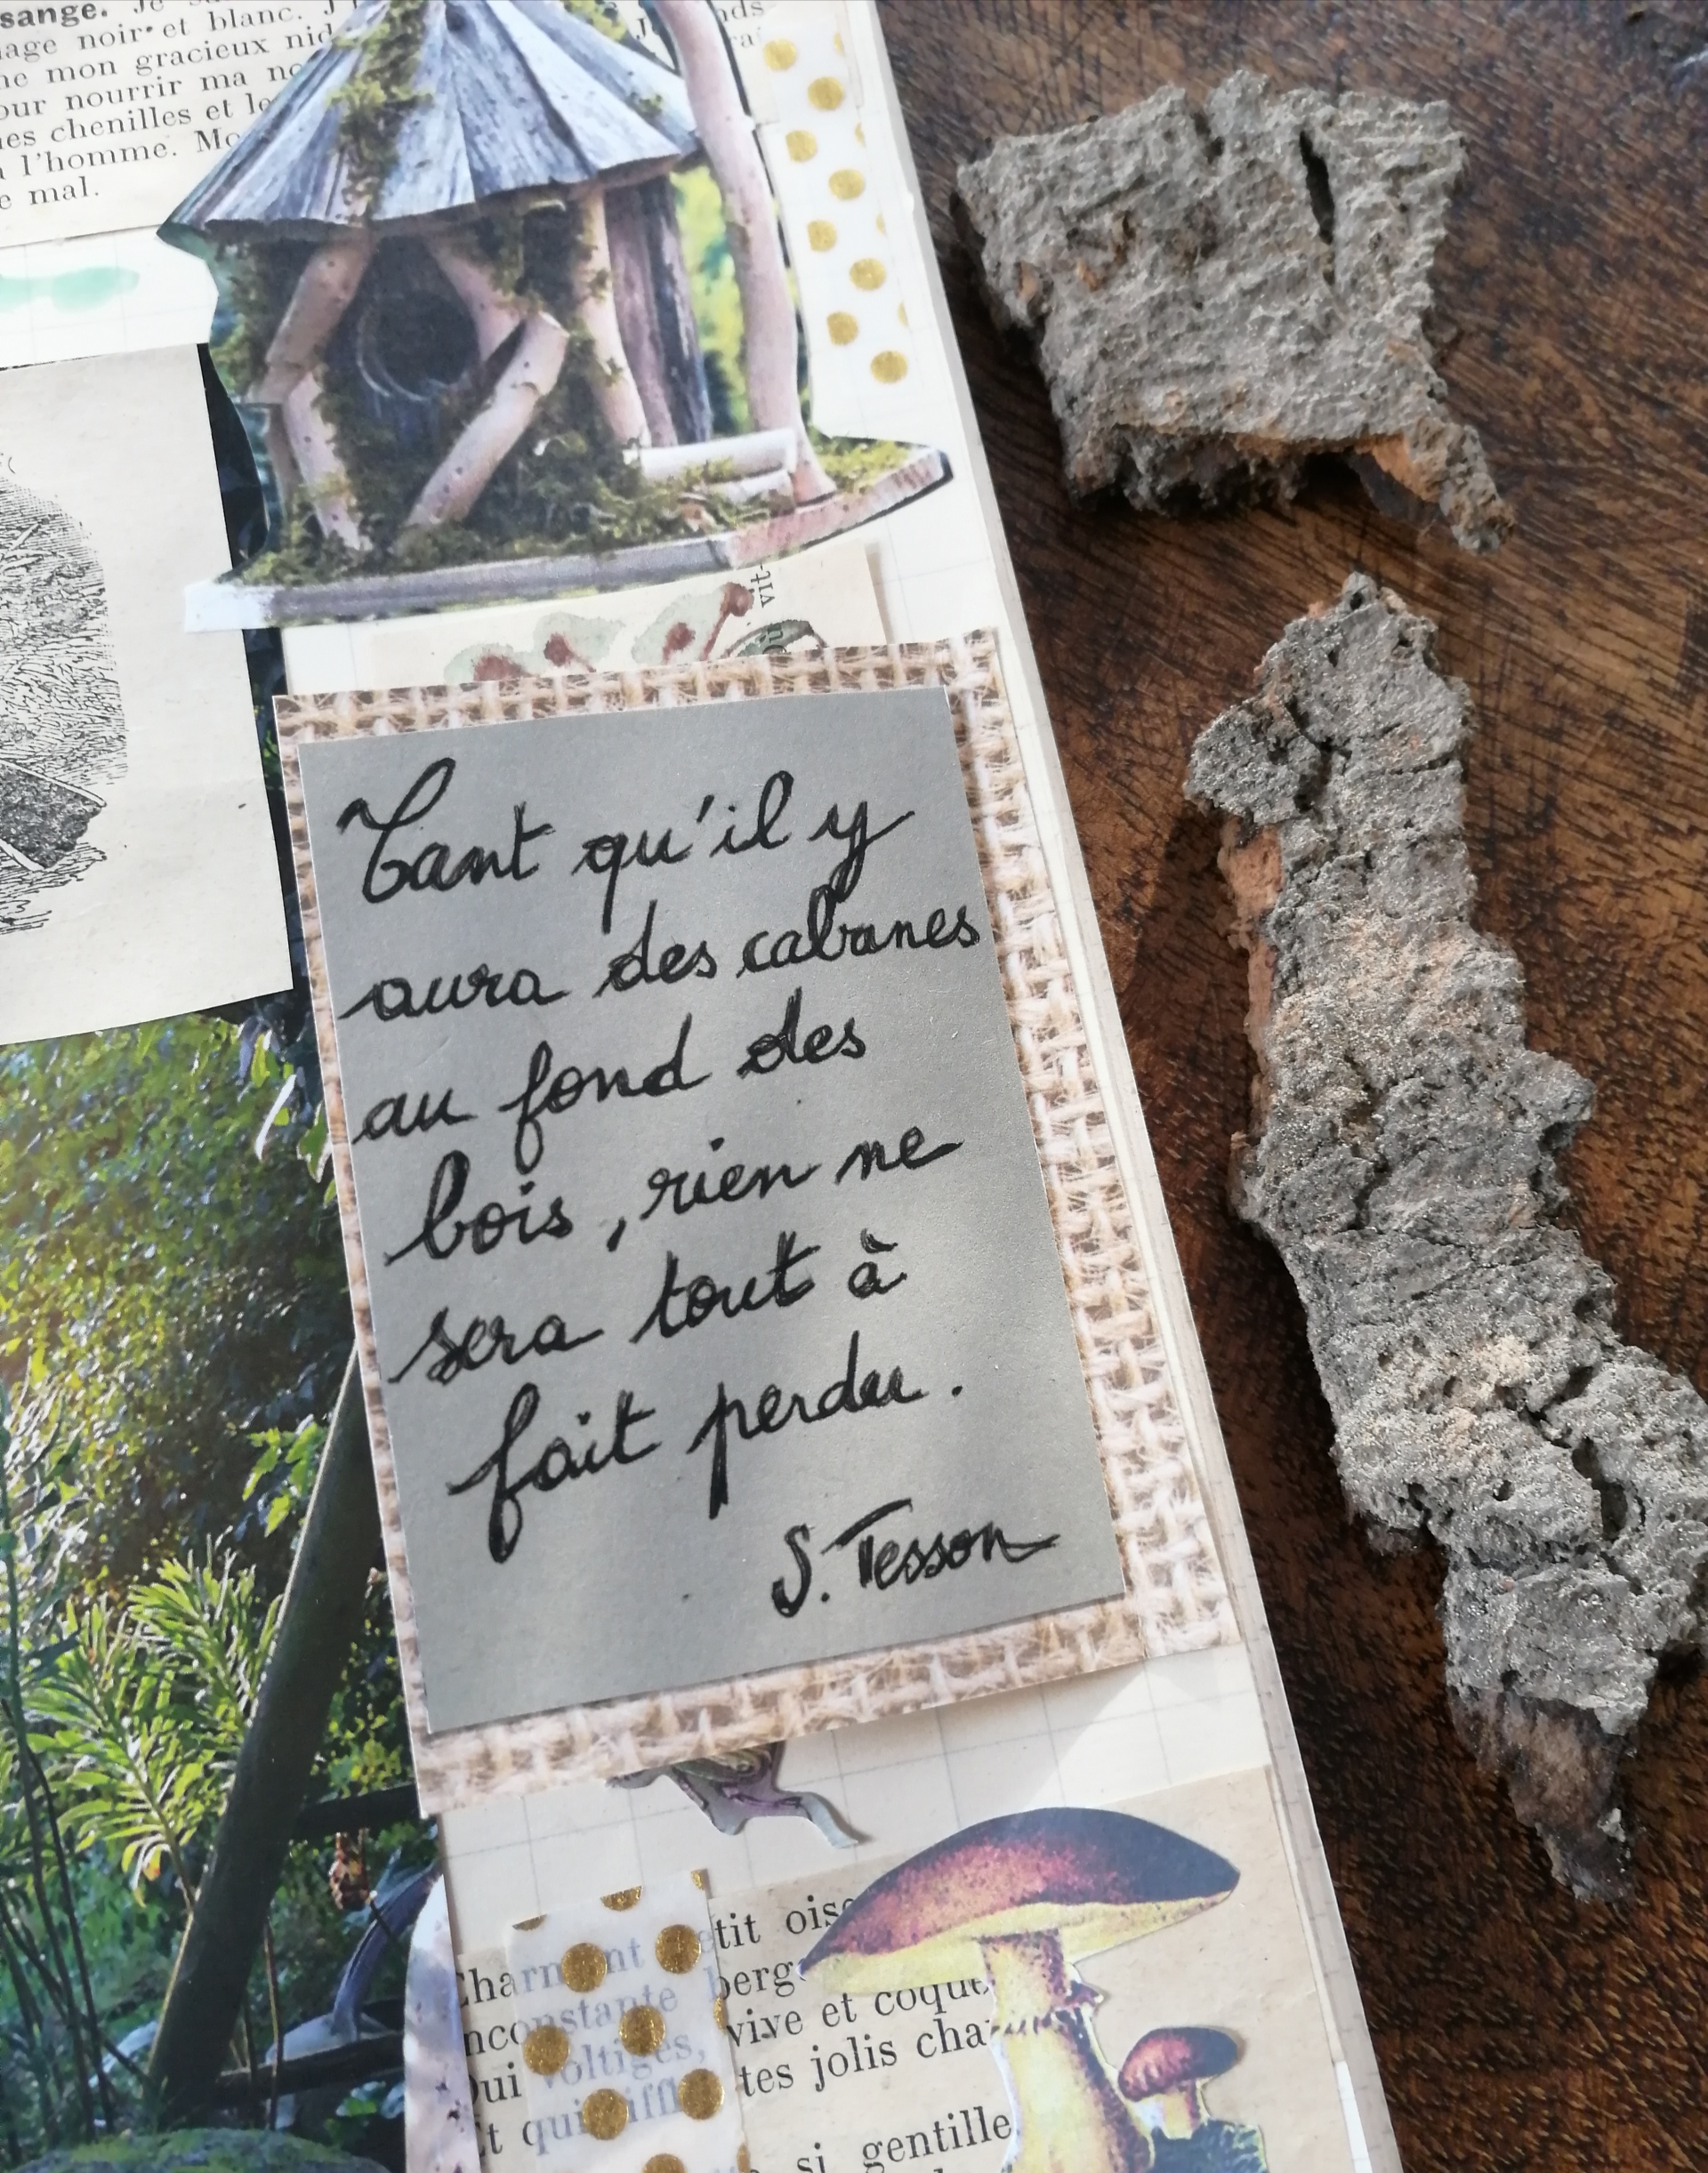 sange. Je
age noir et blanc. J
ne mon gracieux nid
our nourrir ma
es chenilles et le
l'homme. Mo
e mal.
vit-
Tant qu'il y
aura des cabanes
au fond des
bois, rien ne
sera tout à
fait perdu.
S. Tesson
Charmant etit oise
nconstante berge
Qui voltiges, vive et coque
Et qui siffl tes jolis cha
si gentille